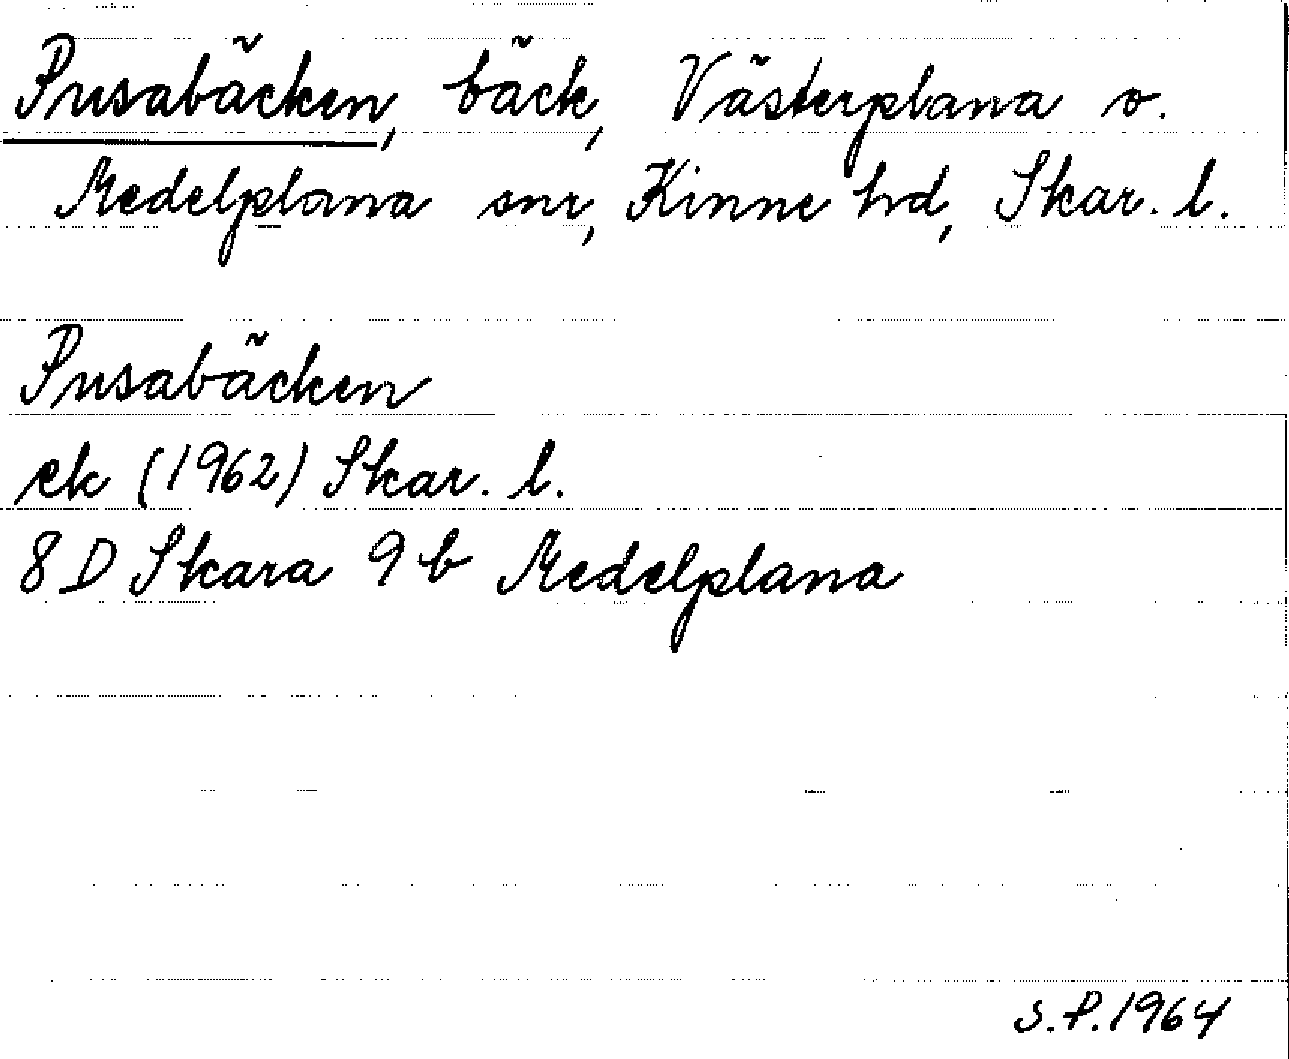 Pusabäcken, bäck, Västerplana o.
Medelplana snr, Kinne hd, Skar. l.
Pusabäcken
ek (1962) Skar. l.
8 D Skara 9 b Medelplana
S.P. 1964